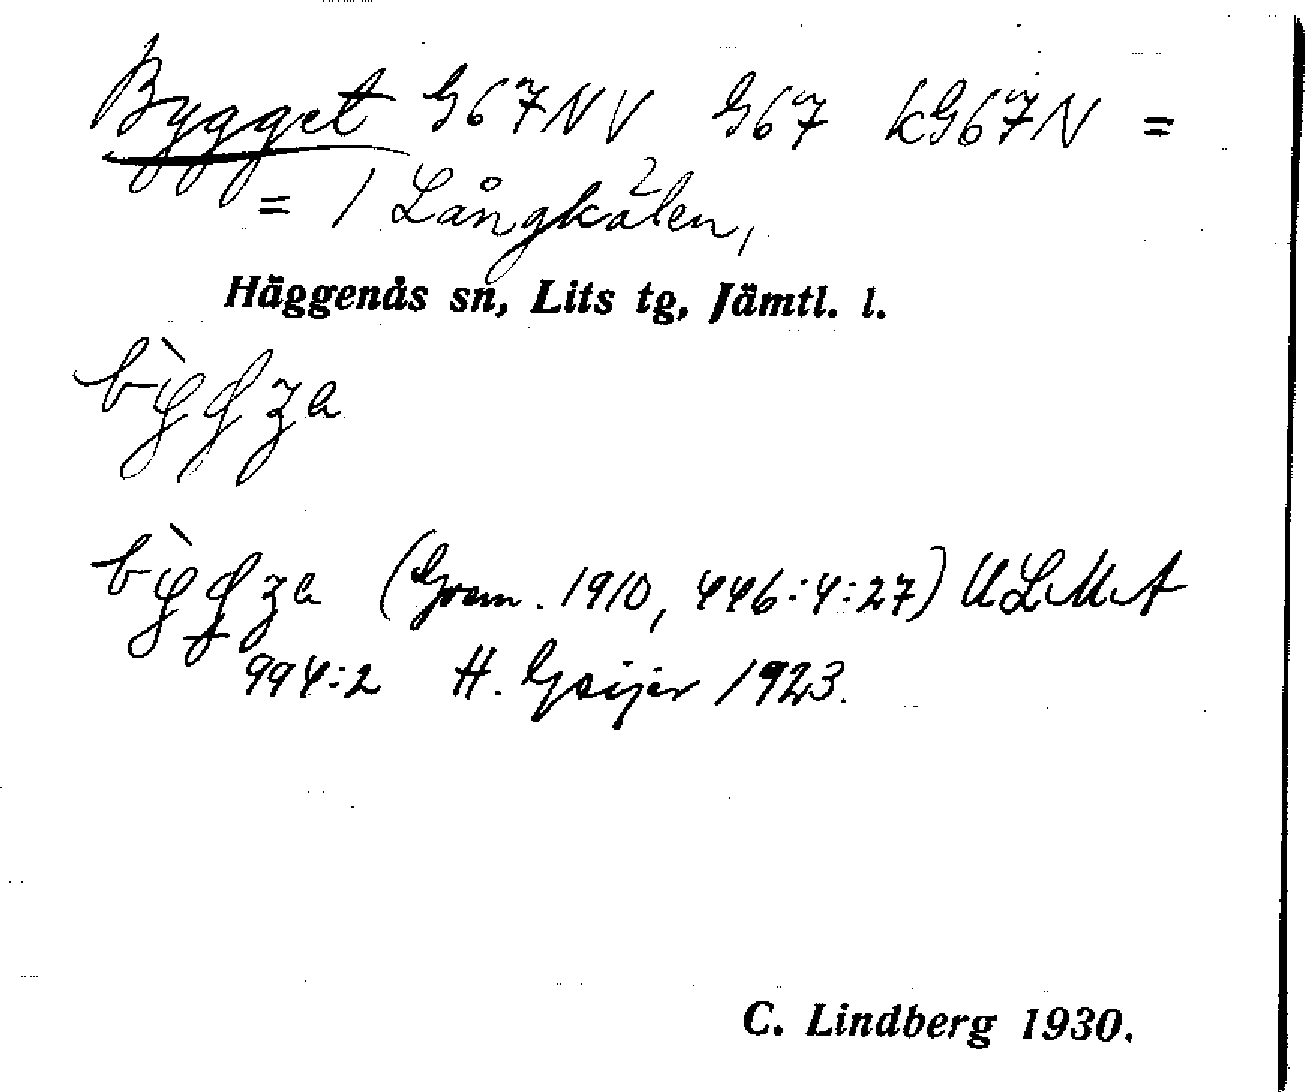 Bygget G67NV G67 kG67N =
= 1 Långkälen,
Häggenås sn, Lits tg, Jämtl. l.
(Grem. 1910, 446:4:27) ULMA
994:2 H. Geijer 1923.
C. Lindberg 1930.